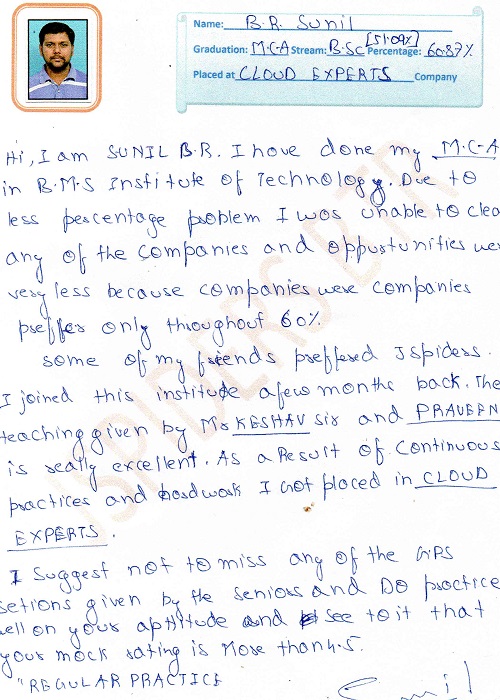 Name: B.R. Sunil
Graduation: M.C.A Stream: B.Sc [51.09%] Percentage: 60.87%
Placed at CLOUD EXPERTS Company
Hi, I am SUNIL B.R. I have done my M.C.A
in B.M.S Institute of Technology. Due to
less percentage problem I was unable to clea
any of the companies and oppurtunities wer
very less because companies were companies
preffer only throughout 60%
some of my friends preffered Jspiders.
I joined this institude a few months back. The
teaching given by Mr KESHAV sir and PRAVEEN
is really excellent. As a Result of continuous
practices and hardwork I got placed in CLOUD
EXPERTS.
I Suggest not to miss any of the
setions given by the seniors and Do practice
ell on your aptitude and see to it that
your mock rating is More than 4.5.
"REGULAR PRACTICE
Sunil
JSPIDERS BTR